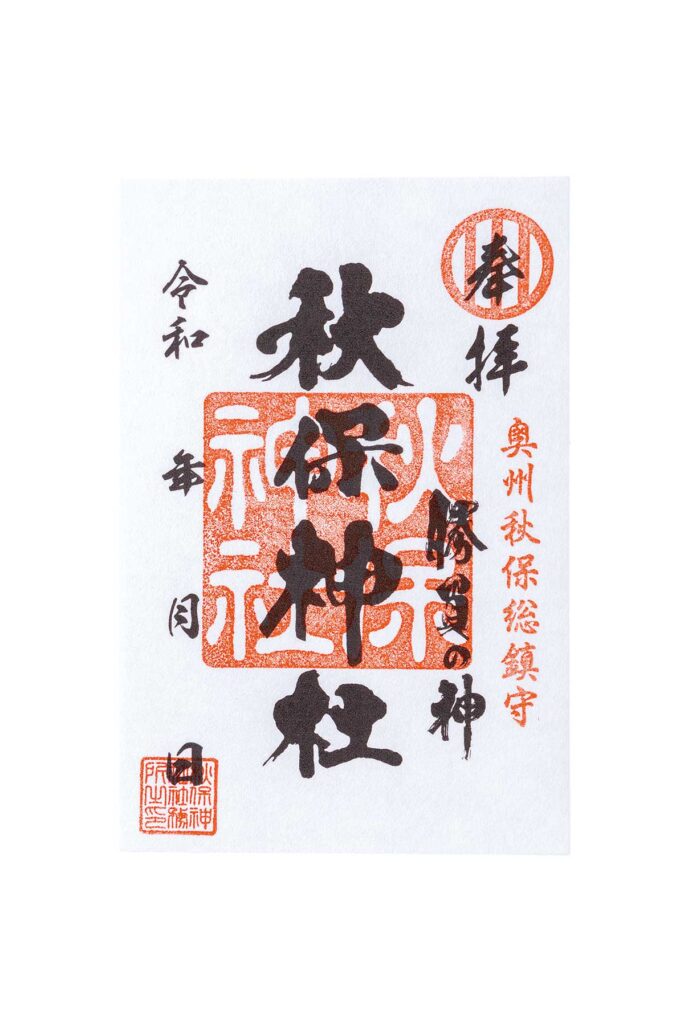 奉拝
奥州秋保総鎮守
勝負の神
秋保神社
秋保神社
令和 年 月 日
秋保神社社務所之印